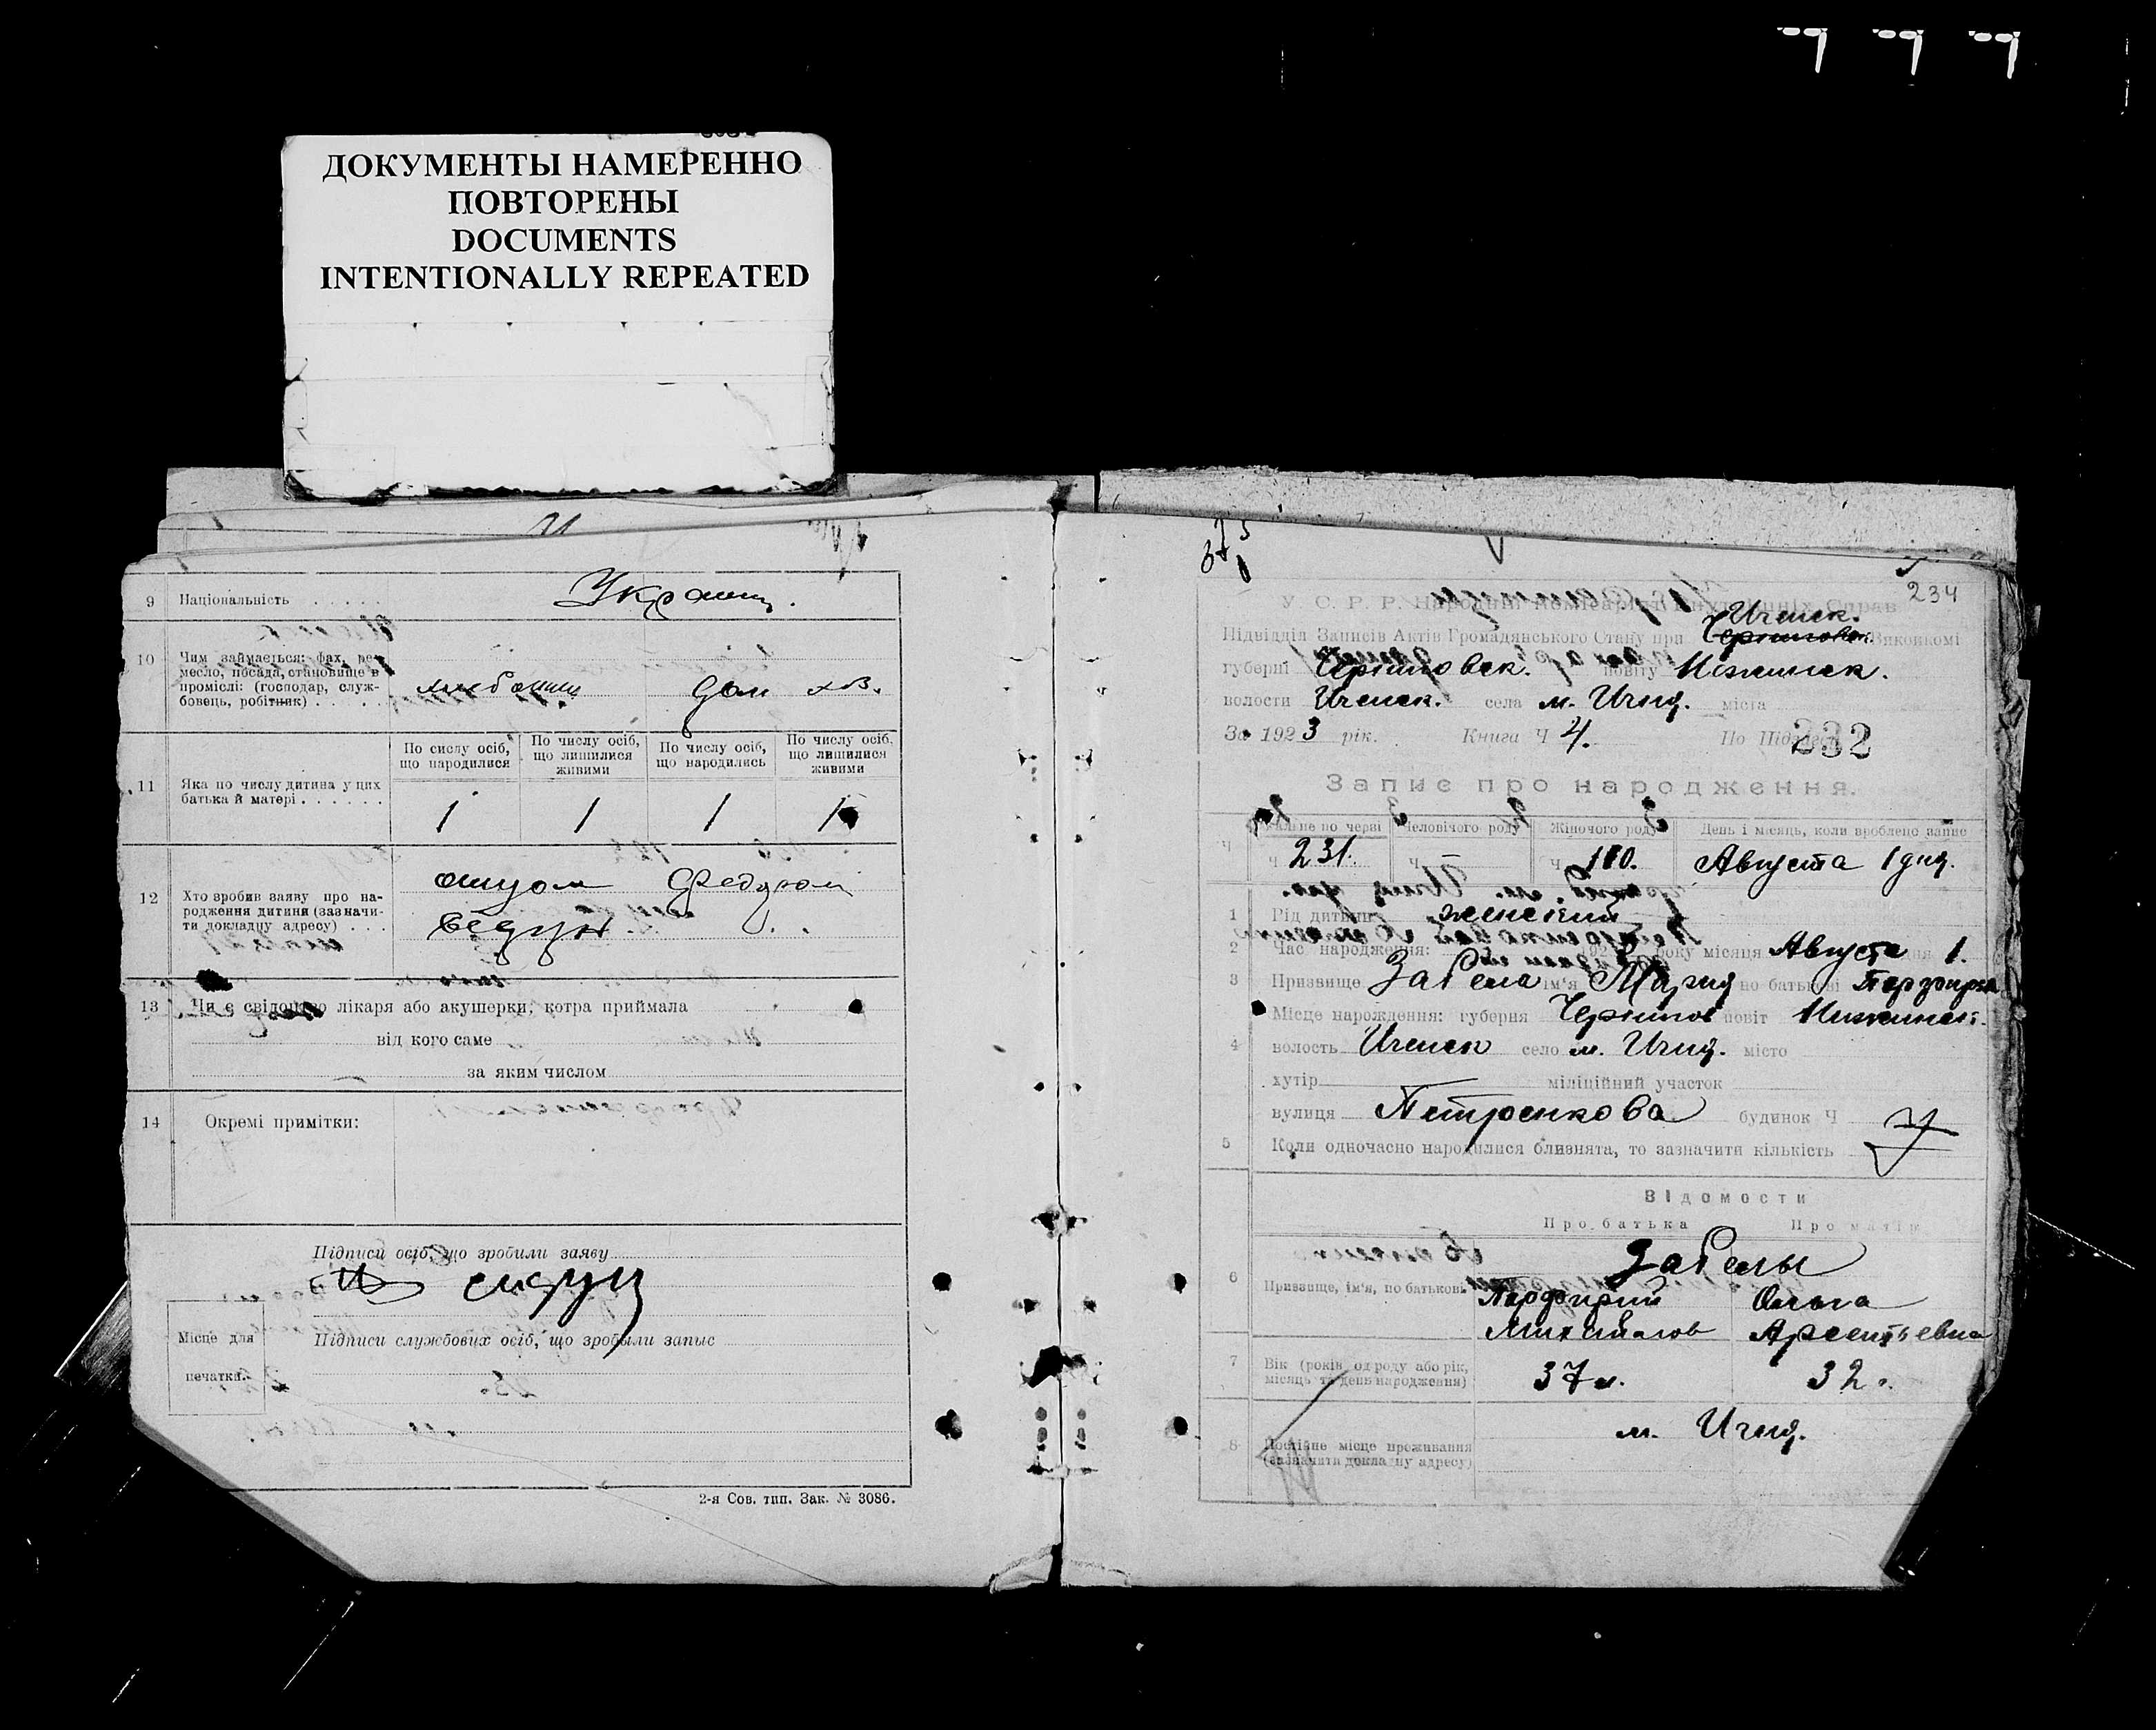 ДОКУМЕНТЫ НАМЕРЕННО
ПОВТОРЕНЫ
DOCUMENTS
INTENTIONALLY REPEATED
9 Національність Украин.
10 Чим займається: фах, ре-
месло, посада, становище в
проміслі: (господар, служ-
бовець, робітник)
хлебопаш дом хоз.
По числу осіб, що народилися
По числу осіб, що лишилися живими
По числу осіб, що народились
По числу осіб, що лишилися живими
11 Яка по числу дитина у цих
батька й матері
1 1 1 1
12 Хто зробив заяву про на-
родження дитини (зазначи-
ти докладну адресу)
отцом Федором
Бедун.
13 Чи є свідоцтво лікаря або акушерки, котра приймала
від кого саме
за яким числом
14 Окремі примітки:
Підписи осіб, що зробили заяву
Підписи службових осіб, що зробыли запыс
Місце для
печатки.
2-я Сов. тип. Зак. № 3086.
373
234
У. С. Р. Р. Народній Комісаріят Внутрішніх Справ
Ичнск.
Підвідділ Записів Актів Громадянського Стану при Черниговск. Виконкомі
губерні Черниговск. повіту Нежинск.
волости Ичнск. села м. Ичня. міста
За 1923 рік. Книга Ч 4. По Підвідділу
232
Запис про народження.
Загальне по черзі Чоловічого роду Жіночого роду День і місяць, коли вроблено запис
Ч 231. Ч — Ч 110. Августа 1 дня.
1 Рід дитини женский
2 Час народження: 1923 року місяця Августа дня 1.
3 Призвище Забела ім'я Мария по батькові Порфирьев
4 Місце народження: губерня Чернигов повіт Нежинск.
волость Ичнск село м. Ичня. місто
хутір міліційний участок
вулиця Петренкова будинок Ч
5 Коли одночасно народилися близнята, то зазначити кількість
Відомости
Про батька Про матір
6 Призвище, ім'я, по батькові
Забелы
Порфирий Ольга
Михайлов Арсентьевна
7 Вік (років од роду або рік,
місяць та день народження) 37 л. 32 л.
8 Постійне місце проживання
(зазначити докладну адресу)
м. Ичня.